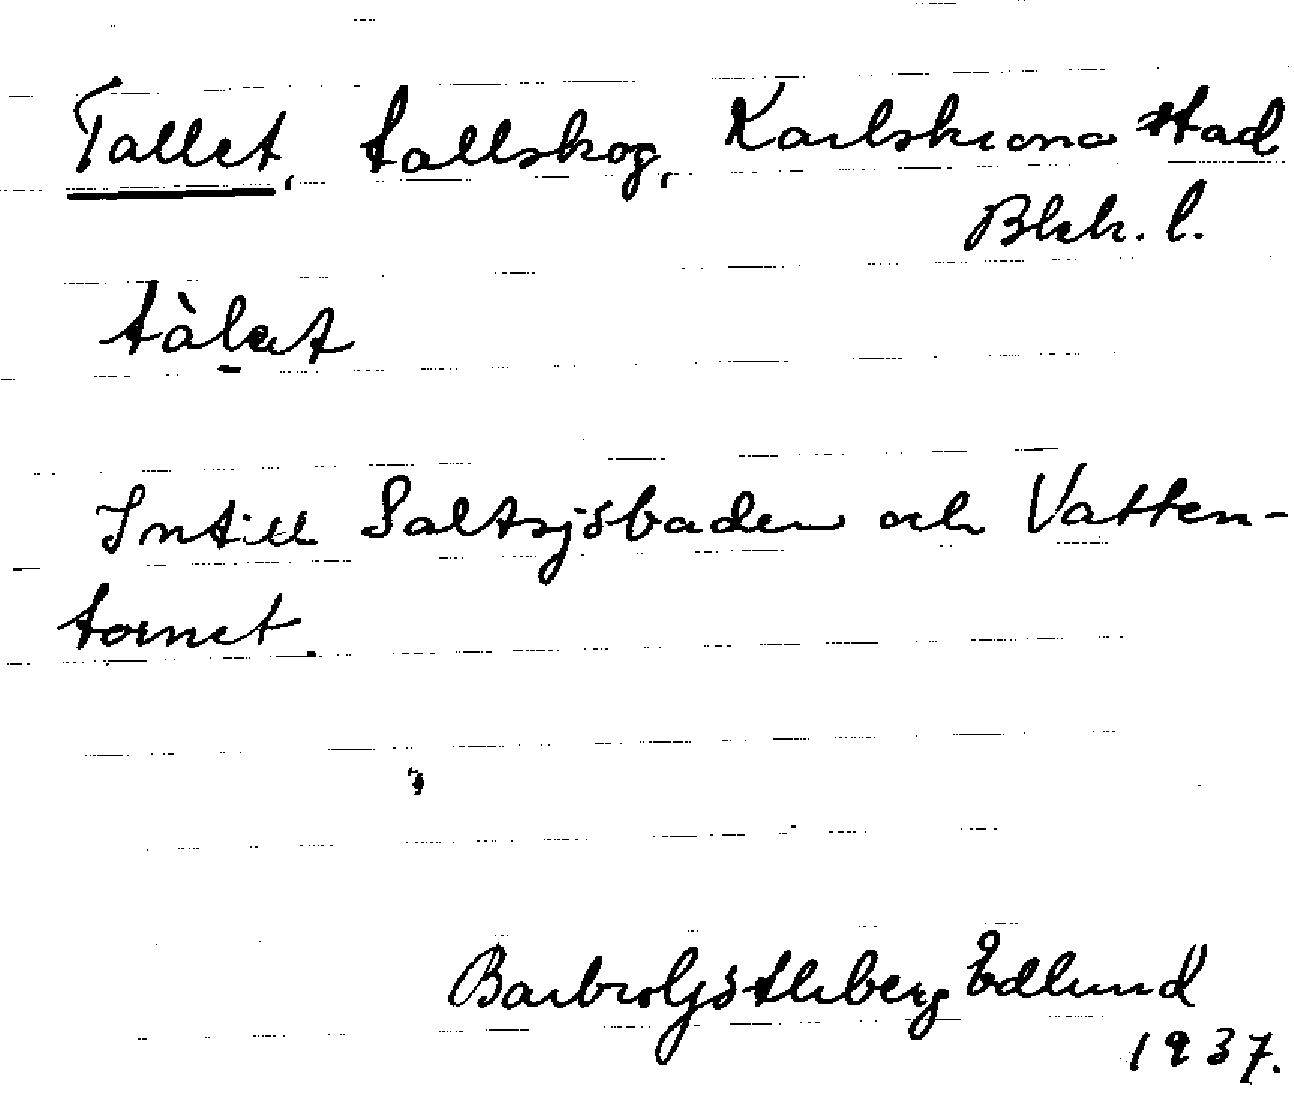 Tallet, tallskog, Karlskrona stad
Blek. l.
tàlat
Intill Saltsjöbaden och Vatten-
tornet.
Edlund
1937.